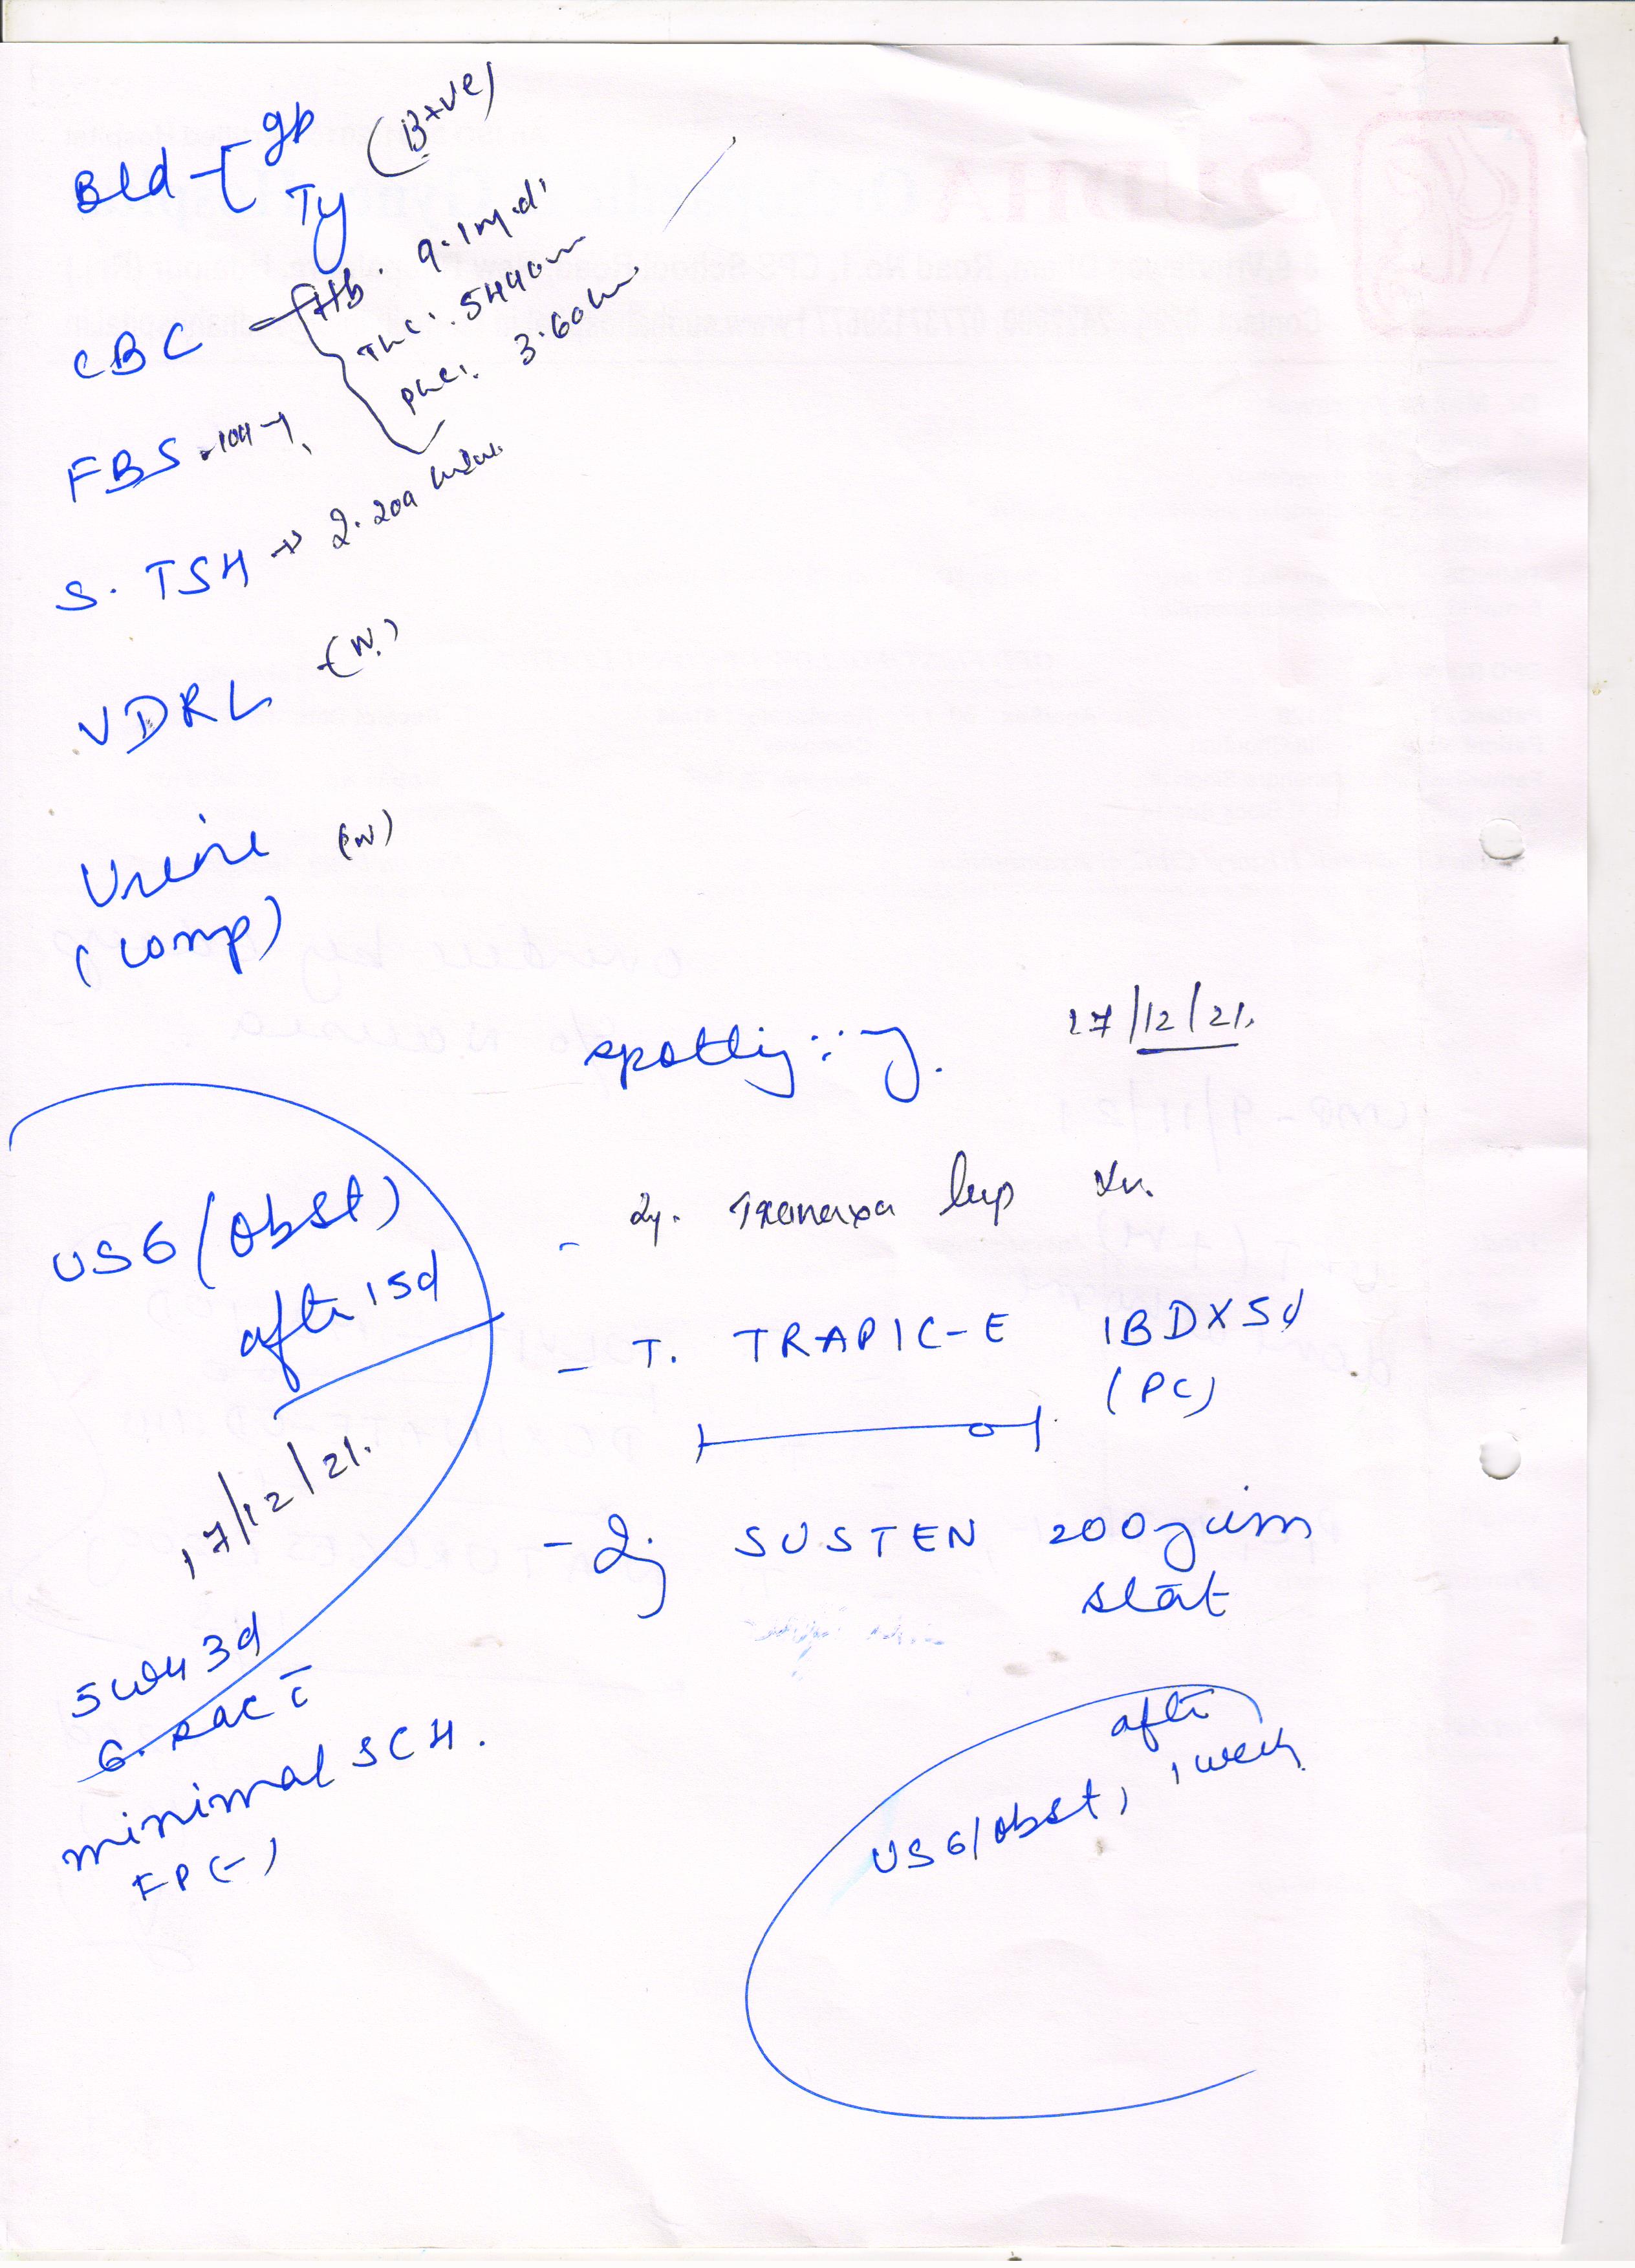 Bld - [ gp (B+ve)
Ty
CBC Hb. 9.1 m.d'
TLC: 5490
PLC: 3.60
FBS - 104
S. TSH → 2.209
VDRL (N.)
Urine (N)
(comp)
17/12/21.
spotting
USG (Obst)
after 15d
17/12/21.
5wk 3d
G. sac c̄
minimal SCH.
FP (-)
- Inj. Tranexa
- T. TRAPIC-E 1BD X 5d
(PC)
- Inj SUSTEN 200 im
stat
after
1 week
USG/Obst,